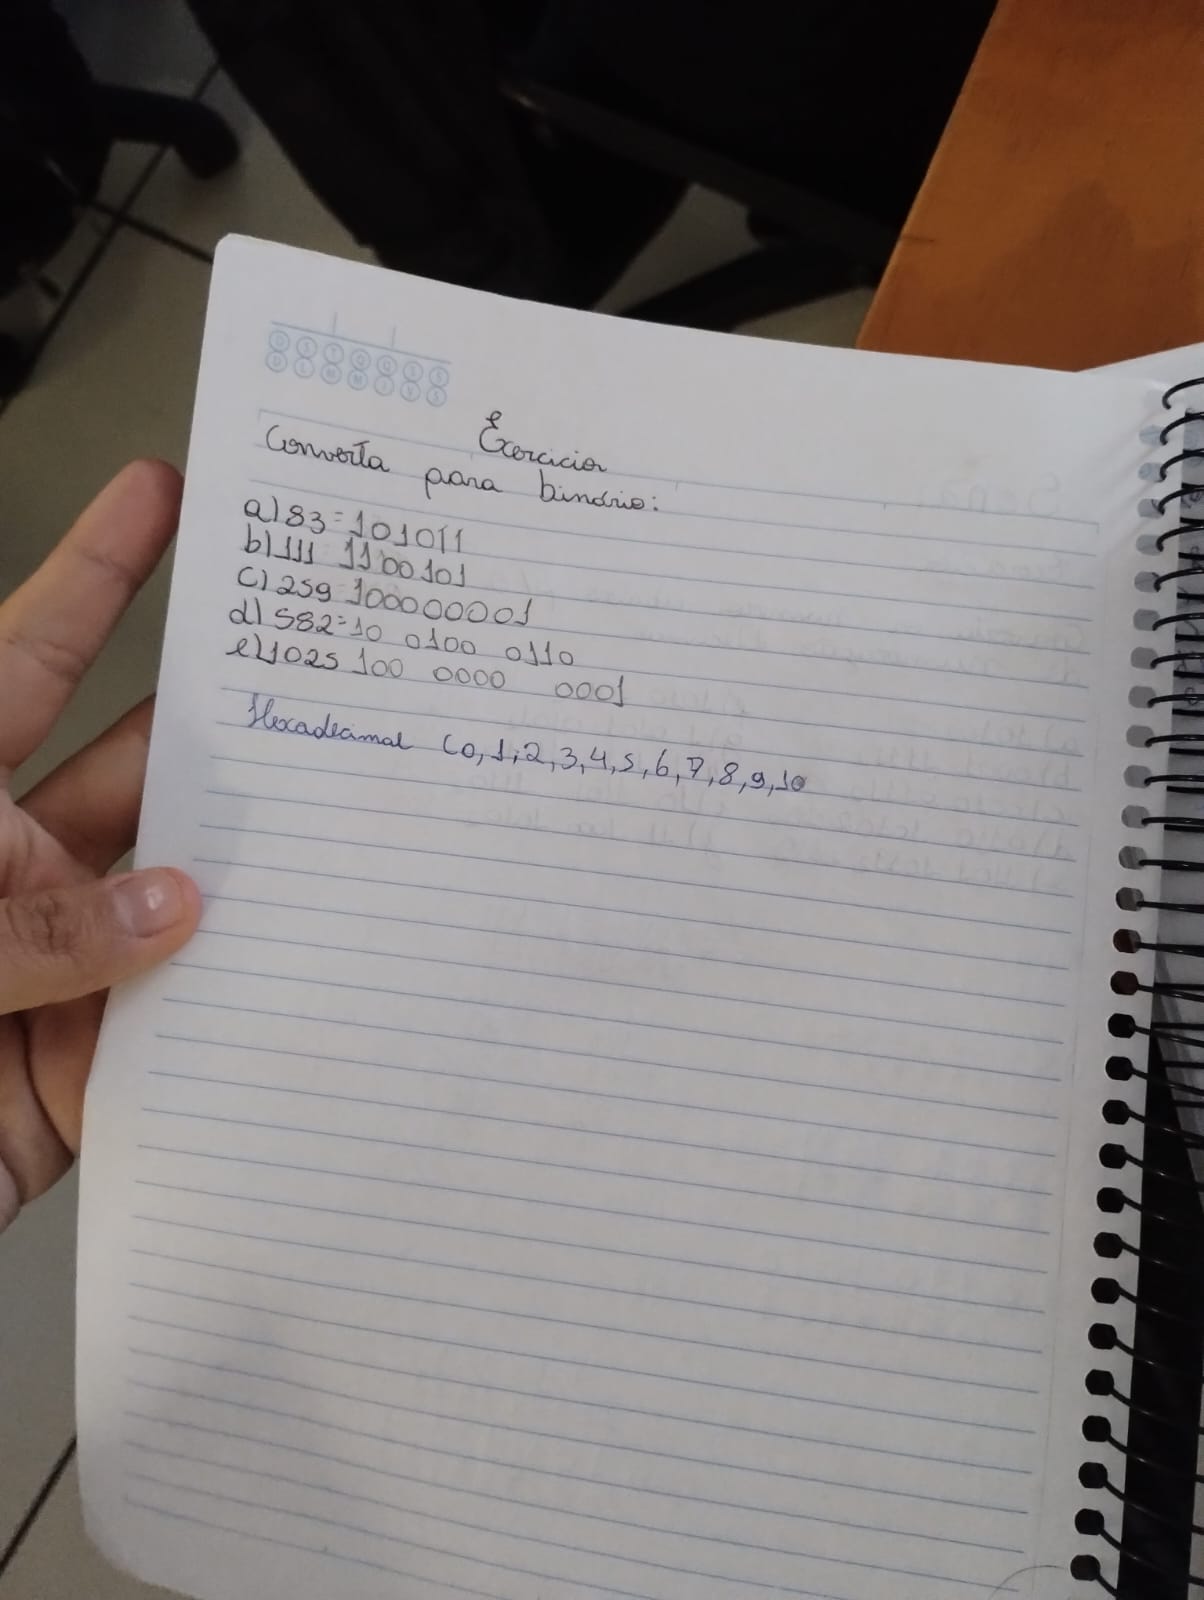 D S T Q Q S S
D L M M J V S
Exercicios
Converta para binário:
a) 83=101011
b) 111 1100101
c) 259 100000001
d) 582=10 0100 0110
e) 1025 100 0000 0001
Hexadecimal (0,1,2,3,4,5,6,7,8,9,10